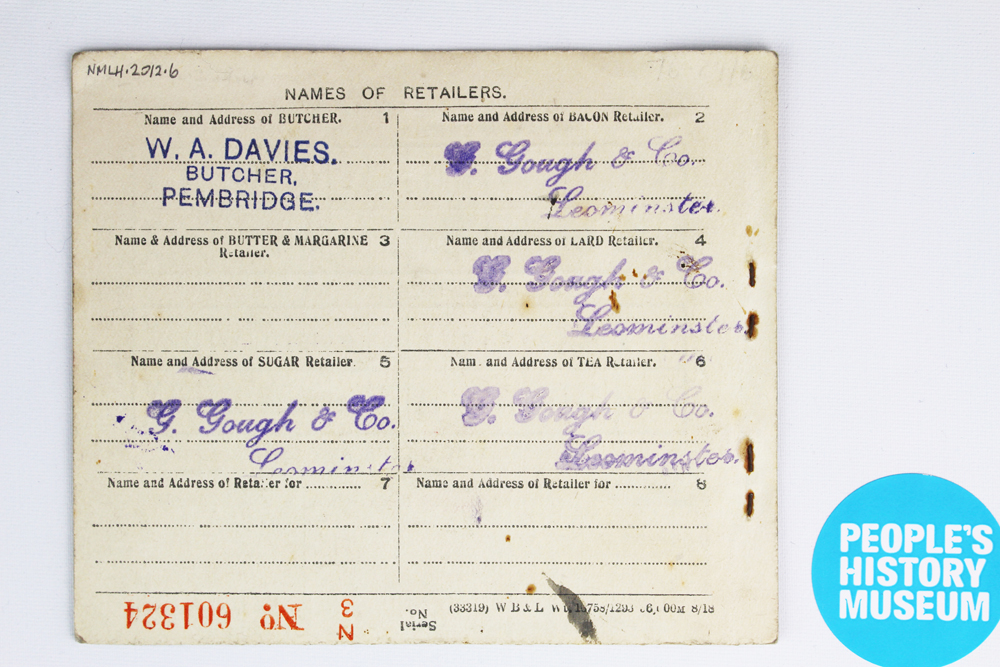 NMLH.2012.6
NAMES OF RETAILERS.
Name and Address of BUTCHER. 1
W. A. DAVIES.
BUTCHER,
PEMBRIDGE.
Name and Address of BACON Retailer. 2
G. Gough & Co.
Leominster.
Name & Address of BUTTER & MARGARINE 3
Retailer.
Name and Address of LARD Retailer. 4
G. Gough & Co.
Leominster.
Name and Address of SUGAR Retailer. 5
G. Gough & Co.
Leominster
Name and Address of TEA Retailer. 6
G. Gough & Co.
Leominster.
Name and Address of Retailer for ............ 7
Name and Address of Retailer for ............ 8
Serial No. N 3 No 601324
(33319) W B & L 8/18
PEOPLE'S
HISTORY
MUSEUM